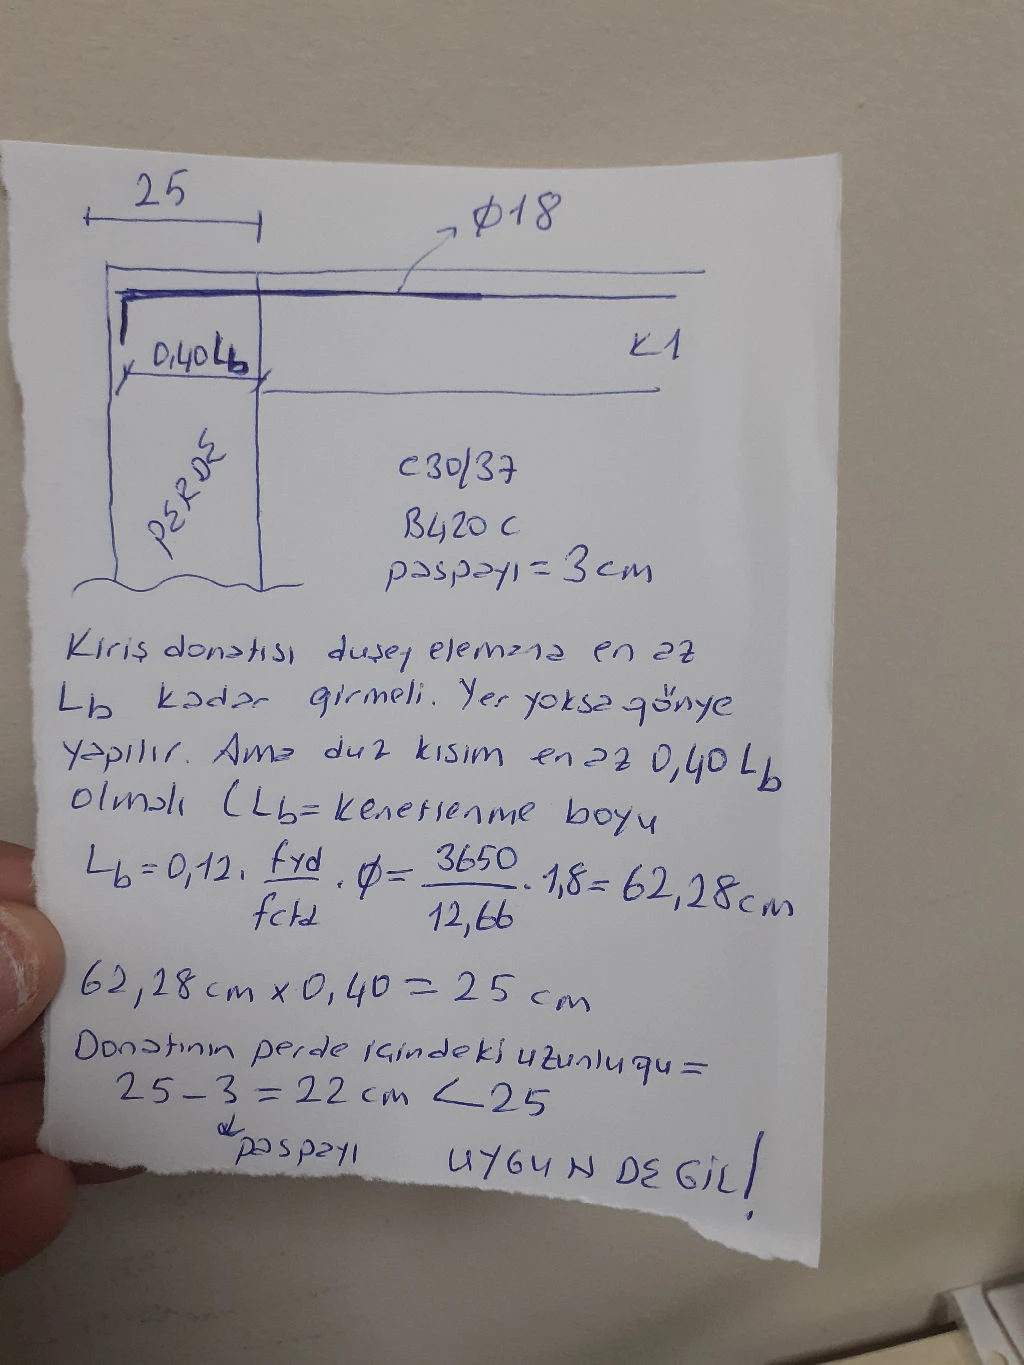 25
Φ18
0,40Lb
K1
PERDE
C30/37
B420C
paspayı = 3cm
Kiriş donatısı duşey elemana en az
Lb kadar girmeli. Yer yoksa gönye
yapılır. Ama duz kısım en az 0,40 Lb
olmalı (Lb= kenetlenme boyu
Lb=0,12. fyd/fctd . Φ= 3650/12,66 . 1,8= 62,28cm
62,28cm x 0,40 = 25 cm
Donatının perde içindeki uzunluğu=
25-3 = 22cm <25
paspayı
UYGUN DEGİL!